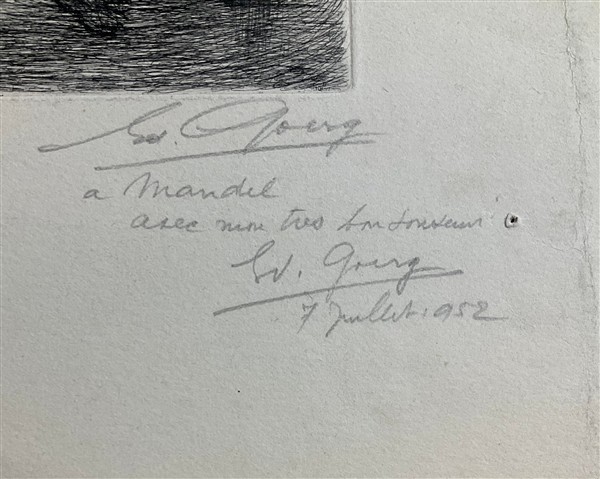 Ed. Goerg
a Mandel
avec mon tres bon souvenir
Ed. Goerg
7 Juillet 1952